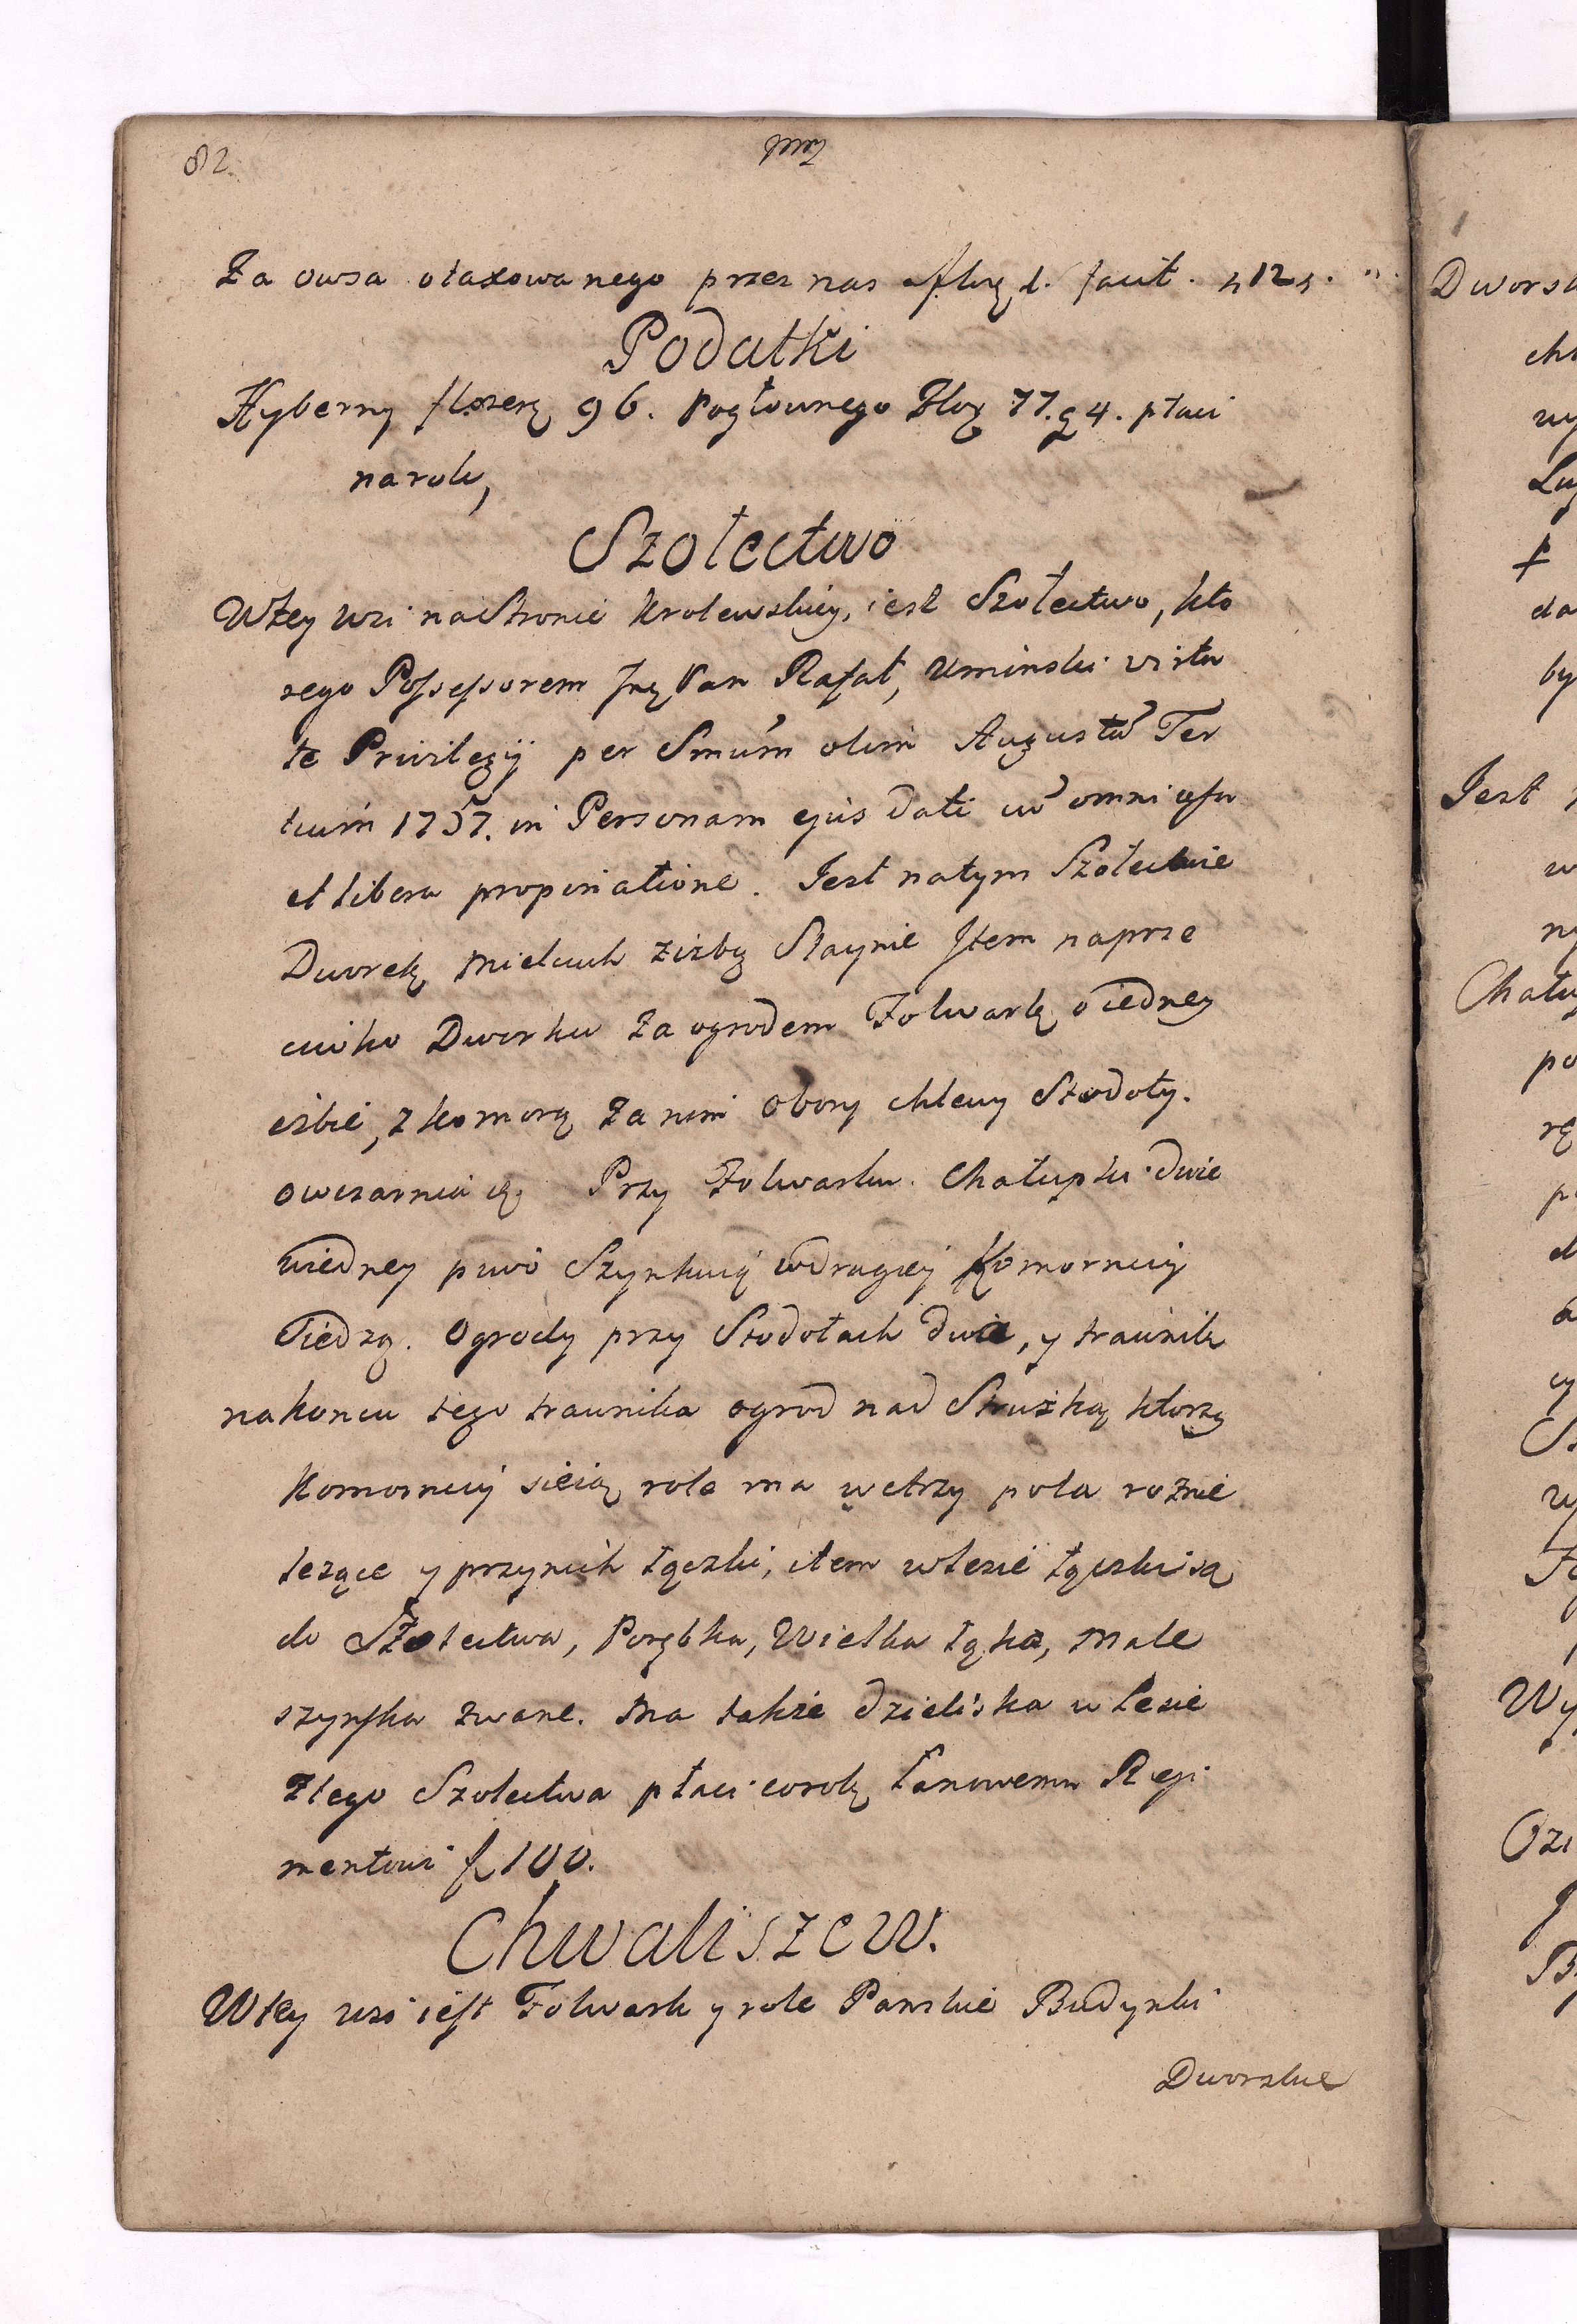 82.
Za owsa otaxowanego przez nas
Podatki
Hyberny florenę 96. Pogłownego Zlox 77. g 4. płaci
na rok,
Szolectwo
Wtey wsi na Stronie Krolewskiey, iest Szolectwo, kto
rego Possessorem Jmę Pan Rafał, Uminski virtu
te Privilegij per Smum olim Augustū Ter
tium 1757. in Personam ejus dati cū omni usu
et libera propinatione. Jest natym Szolectwie
Dworek Mielcuch zizbą Staynie Item naprze
ciwko Dworku za ogrodem Folwark oiedney
izbie, z komorą za nim Obory chlewy Stodoły.
owczarnia etc. Przy Folwarku. Chałupki dwie
wiedney piwo Szynkuią wdrugiey Komornicy
Siedzą. Ogrody przy Stodołach dwa, y trawnik
nakoncu tego trawnika ogrod nad Struzką ktory
Komornicy sieią role ma wetrzy pola roznie
lezące y przynich łączki, item wlesie łączki są
do Szolectwa, Porębka, Wielka łąka, Male
szynska zwane. Ma takze dzieliska w Lesie
Ztego Szolectwa płaci corok Łanowemu Regi
mentowi f. 100.
Chwaliszew.
Wtey wsi iest Folwark y role Panskie Budynki
Dworskie
Dworsk
Jest